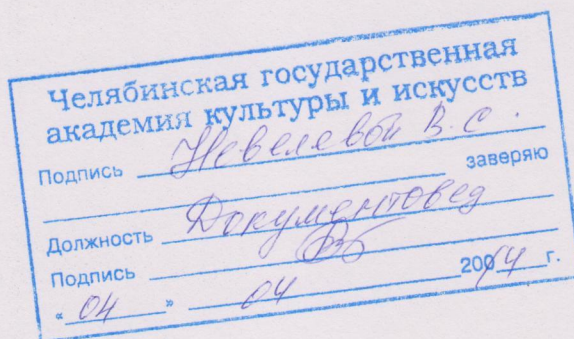 Челябинская государственная
академия культуры и искусств
Подпись Невелевой В.С.
заверяю
Должность Документовед
Подпись
« 04 » 04 20014 г.